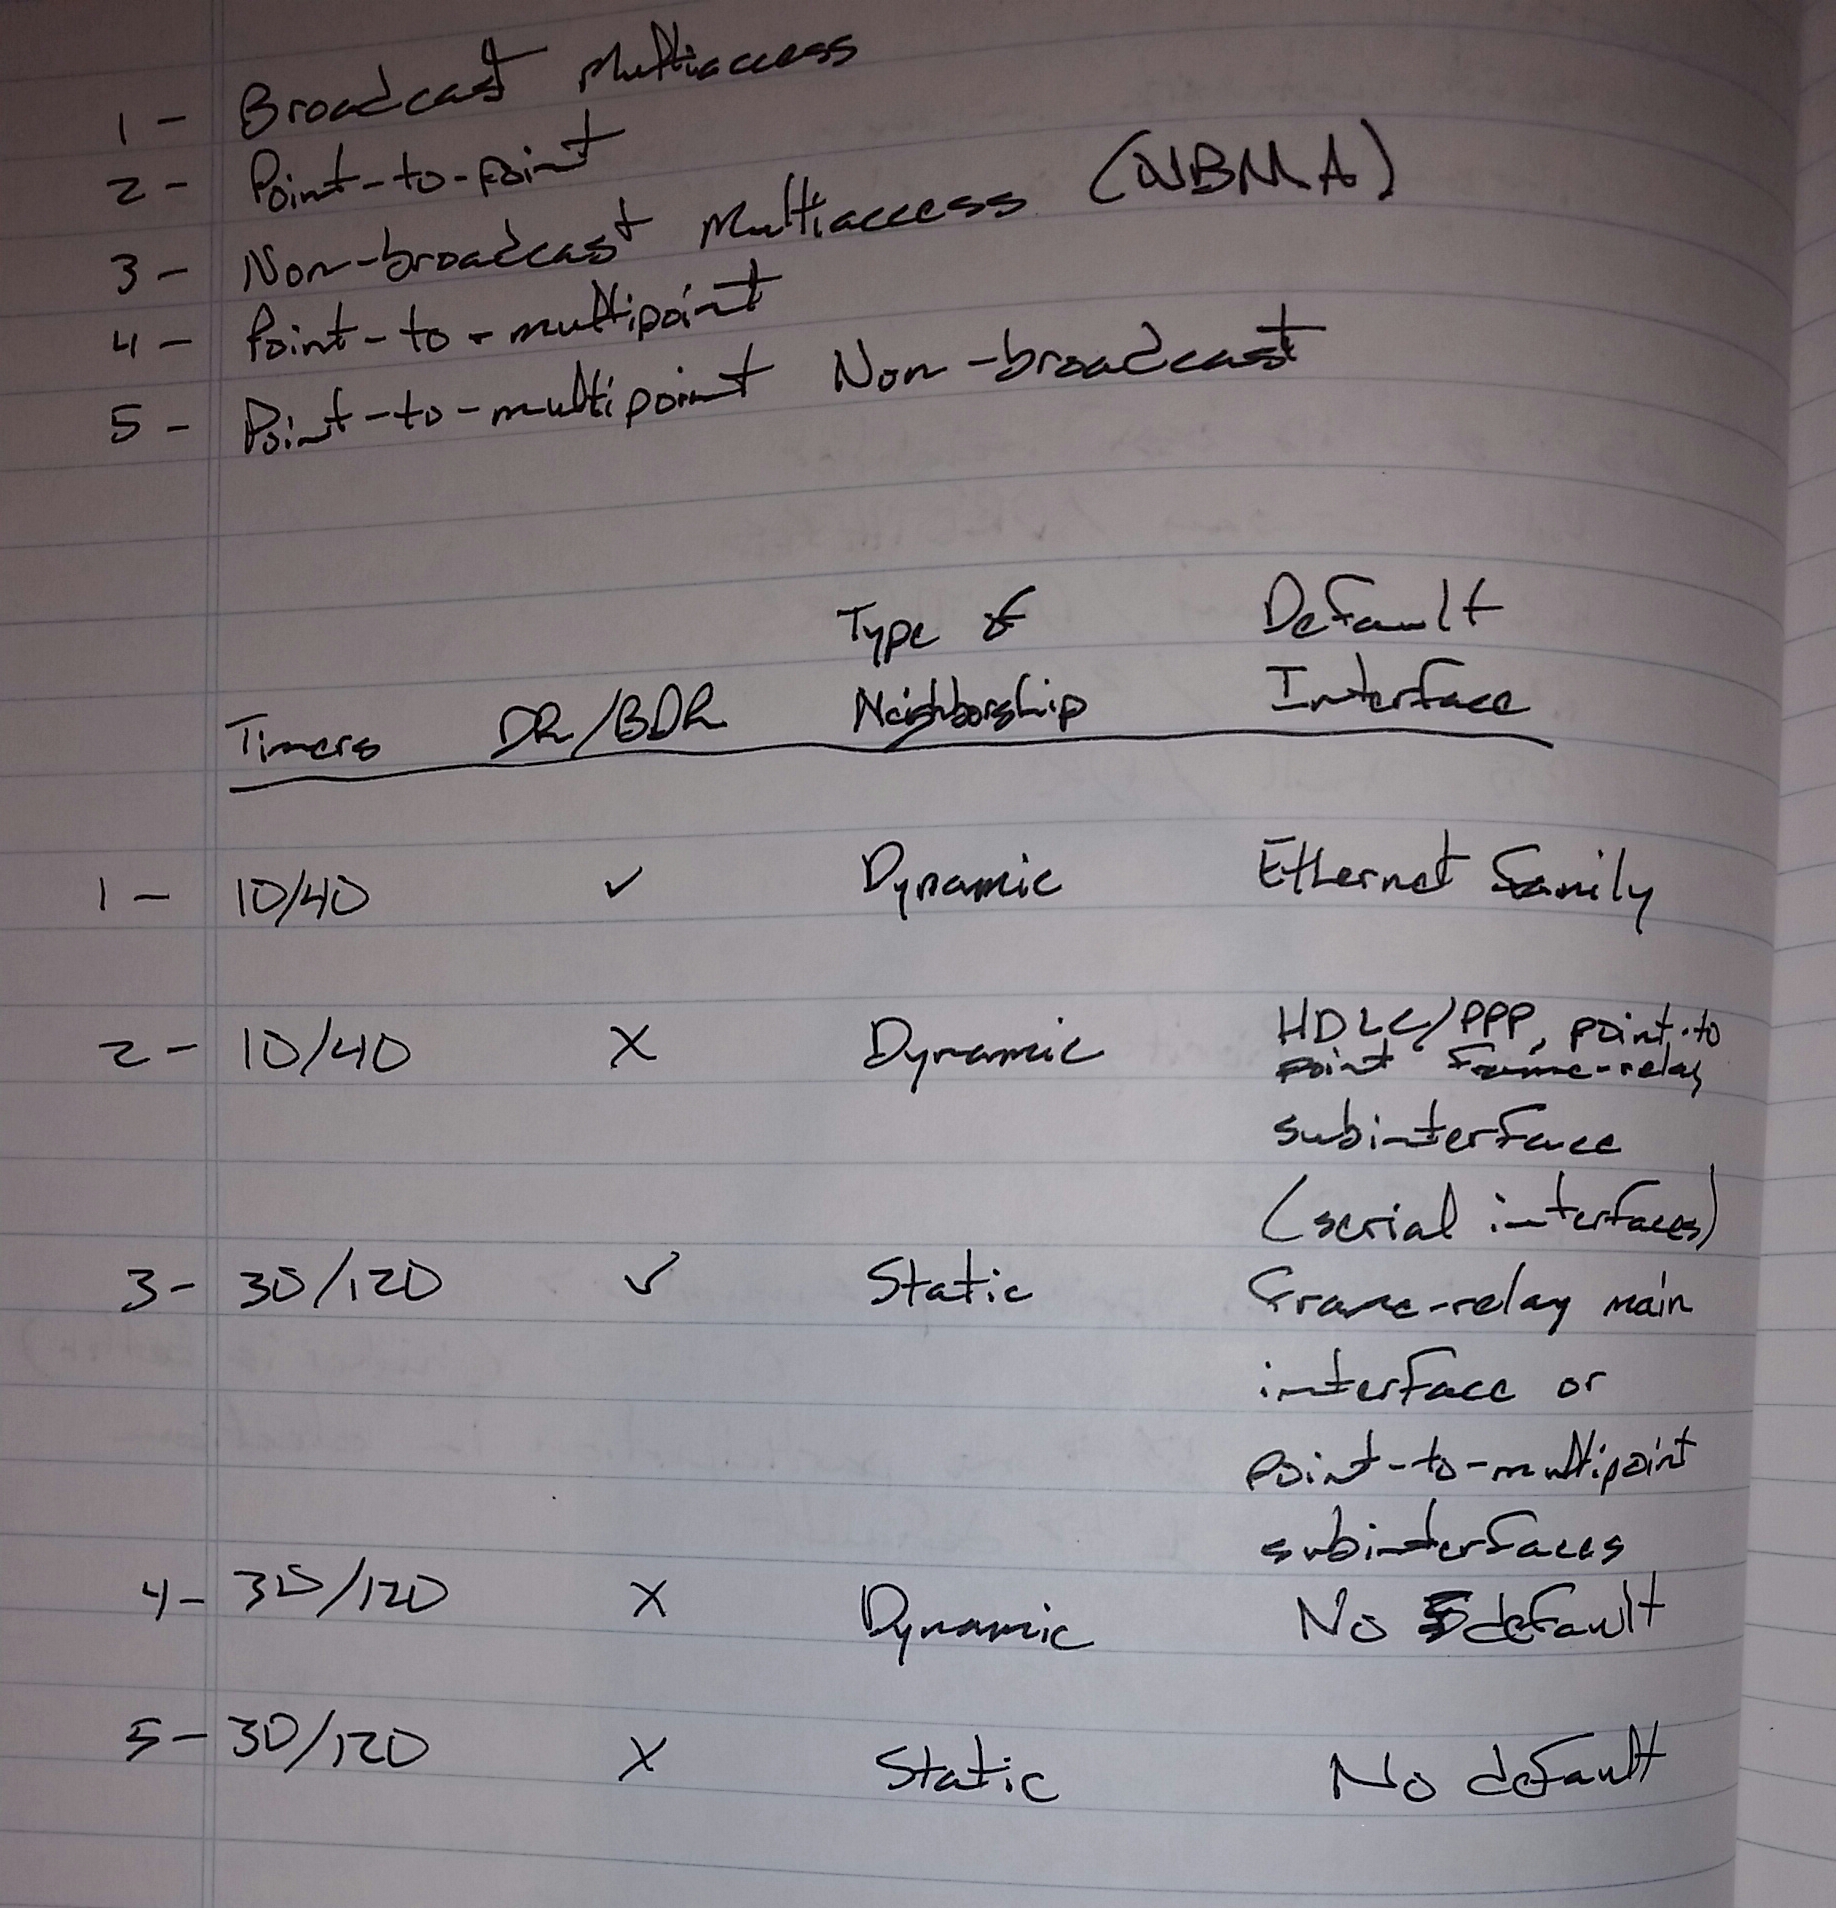 1 - Broadcast Multiaccess
2 - Point-to-point
3 - Non-broadcast Multiaccess (NBMA)
4 - Point-to-multipoint
5 - Point-to-multipoint Non-broadcast
Type of Default
Timers DR/BDR Neighborship Interface
1 - 10/40 ✓ Dynamic Ethernet family
2 - 10/40 X Dynamic HDLC/PPP, point-to
point frame-relay
subinterface
(serial interfaces)
3 - 30/120 ✓ Static frame-relay main
interface or
point-to-multipoint
subinterfaces
4 - 30/120 X Dynamic No default
5 - 30/120 X Static No default